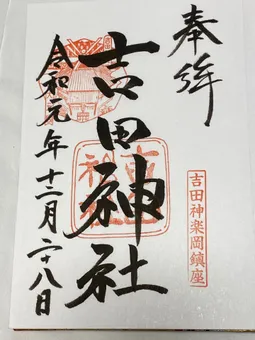 奉拝
吉田神楽岡鎮座
吉田神社
令和元年十二月二十八日